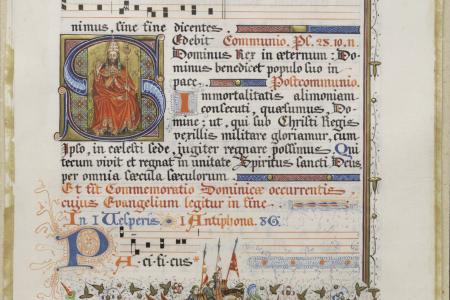 nimus, sine fine dicentes.
Sedebit Communio. Ps. 28. 10. 11.
Dominus Rex in æternum: Do-
minus benedicet populo suo in
pace. Postcommunio.
Immortalitatis alimoniam
consecuti, quæsumus, Domi-
ne: ut, qui sub Christi Regis
vexillis militare gloriamur, cum
Ipso, in cælesti sede, jugiter regnare possimus. Qui
tecum vivit et regnat in unitate Spiritus sancti Deus,
per omnia sæcula sæculorum.
Et fit Commemoratio Dominicæ occurrentis
cujus Evangelium legitur in fine.
In I Vesperis. 1 Antiphona. 8G.
Pa-ci-fi-cus*